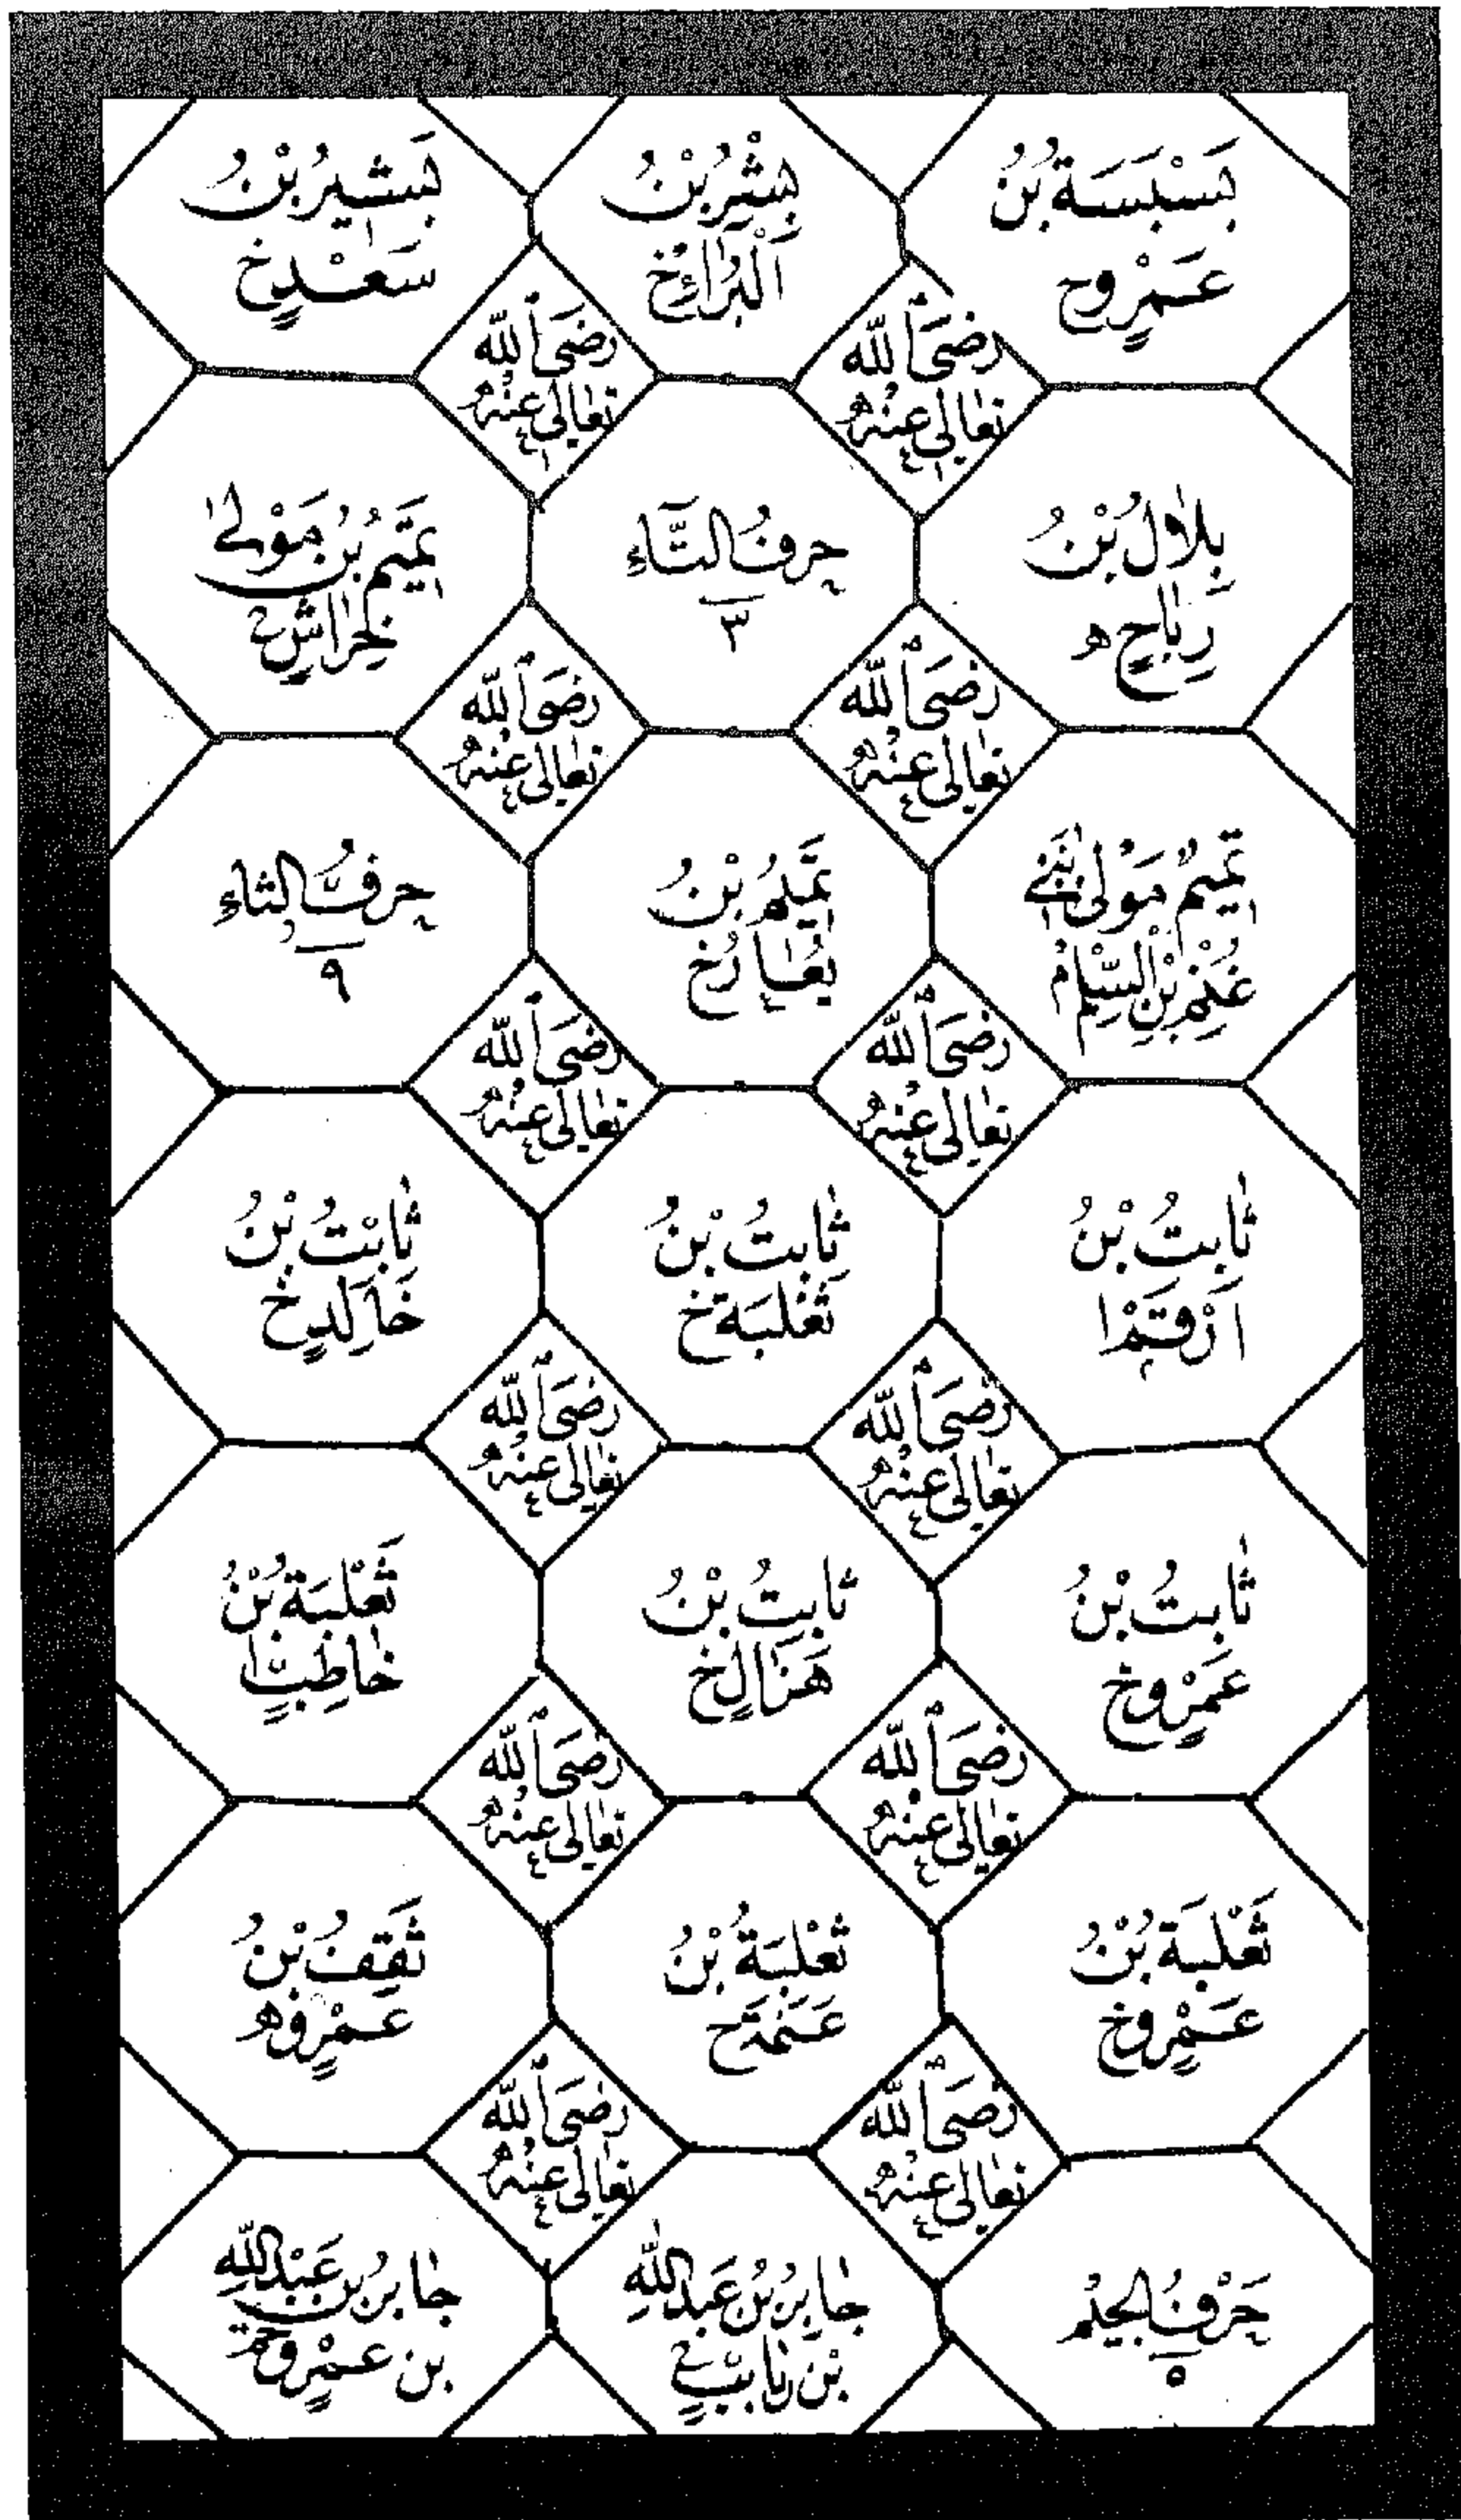 بَسْبَسَة بْنُ
عَمْرٍو خ
بِشْرُ بْنُ
الْبَرَاءِ خ
بَشِيرُ بْنُ
سَعْدٍ خ
رَضِيَ اللّٰه
تَعَالٰى عَنْهُ
رَضِيَ اللّٰه
تَعَالٰى عَنْهُ
بِلَالُ بْنُ
رِبَاحٍ ھ
حرفُ التَّاءِ
٣
تَمِيمُ بْنُ مَوْلٰى
خِرَاشٍ خ
رَضِيَ اللّٰه
تَعَالٰى عَنْهُ
رَضِيَ اللّٰه
تَعَالٰى عَنْهُ
تَمِيمٌ مَوْلٰى بَنِي
غَنْمِ بْنِ السِّلْم
تَمِيمُ بْنُ
يُعَارٍ خ
حرفُ الثاءِ
٩
رَضِيَ اللّٰه
تَعَالٰى عَنْهُ
رَضِيَ اللّٰه
تَعَالٰى عَنْهُ
ثَابِتُ بْنُ
اَرْقَمَ ا
ثَابِتُ بْنُ
ثَعْلَبَة خ
ثَابِتُ بْنُ
خَالِدٍ خ
رَضِيَ اللّٰه
تَعَالٰى عَنْهُ
رَضِيَ اللّٰه
تَعَالٰى عَنْهُ
ثَابِتُ بْنُ
عَمْرٍو خ
ثَابِتُ بْنُ
هَزَّالٍ خ
ثَعْلَبَةُ بْنُ
حَاطِبٍ ا
رَضِيَ اللّٰه
تَعَالٰى عَنْهُ
رَضِيَ اللّٰه
تَعَالٰى عَنْهُ
ثَعْلَبَةُ بْنُ
عَمْرٍو خ
ثَعْلَبَةُ بْنُ
عَنَمَة خ
ثَقِفُ بْنُ
عَمْرٍو ھ
رَضِيَ اللّٰه
تَعَالٰى عَنْهُ
رَضِيَ اللّٰه
تَعَالٰى عَنْهُ
حَرْفُ الْجِيْم
٥
جَابِرُ بْنُ عَبْدِ اللّٰهِ
بْنِ رِيَابٍ خ
جَابِرُ بْنُ عَبْدِ اللّٰهِ
بن عَمْرٍو خ